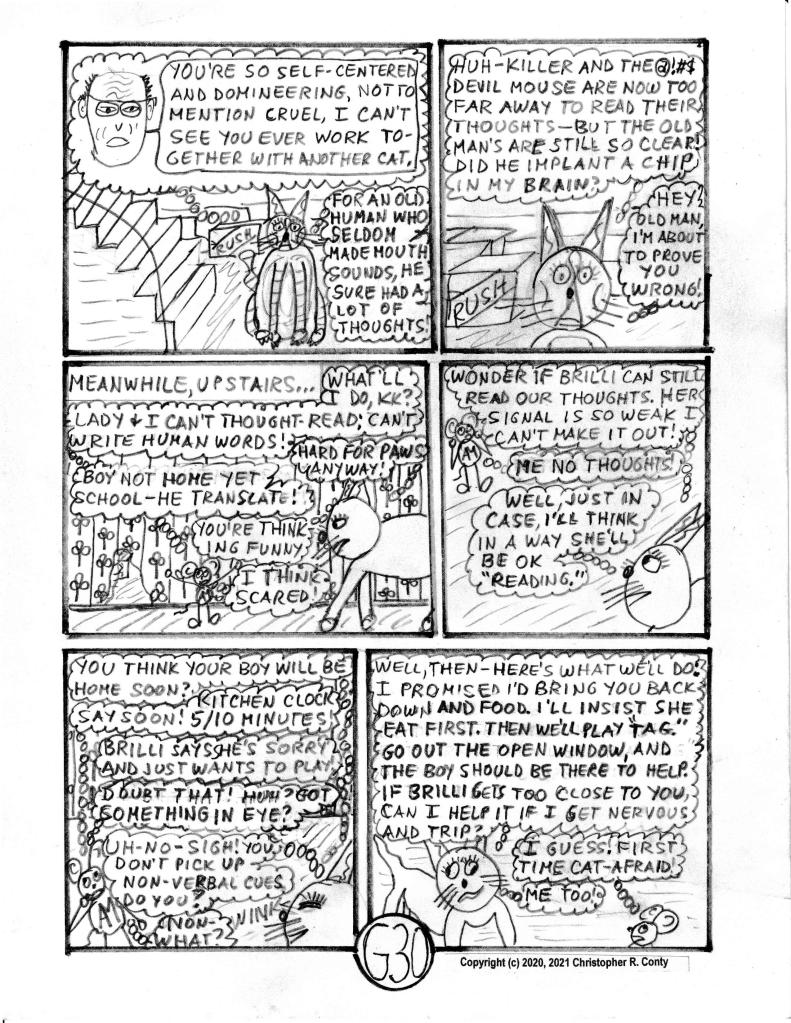 YOU'RE SO SELF-CENTERED
AND DOMINEERING, NOT TO
MENTION CRUEL, I CAN'T
SEE YOU EVER WORK TO-
GETHER WITH ANOTHER CAT.
RUSH
FOR AN OLD
HUMAN WHO
SELDOM
MADE MOUTH
SOUNDS, HE
SURE HAD A
LOT OF
THOUGHTS!
HUH-KILLER AND THE @!#$
DEVIL MOUSE ARE NOW TOO
FAR AWAY TO READ THEIR
THOUGHTS—BUT THE OLD
MAN'S ARE STILL SO CLEAR!
DID HE IMPLANT A CHIP
IN MY BRAIN?
HEY!
OLD MAN,
I'M ABOUT
TO PROVE
YOU
WRONG!
RUSH
MEANWHILE, UPSTAIRS...
WHAT'LL
I DO, KK?
LADY + I CAN'T THOUGHT-READ; CAN'T
WRITE HUMAN WORDS!
HARD FOR PAWS
ANYWAY!
BOY NOT HOME YET
SCHOOL-HE TRANSLATE!
YOU'RE THINK-
ING FUNNY
I THINK
SCARED!
WONDER IF BRILLI CAN STILL
READ OUR THOUGHTS. HER
SIGNAL IS SO WEAK I
CAN'T MAKE IT OUT!
AM
ME NO THOUGHTS!
WELL, JUST IN
CASE, I'LL THINK
IN A WAY SHE'LL
BE OK
"READING."
YOU THINK YOUR BOY WILL BE
HOME SOON?
KITCHEN CLOCK
SAY SOON! 5/10 MINUTES!
BRILLI SAYS SHE'S SORRY
AND JUST WANTS TO PLAY!
DOUBT THAT! HUH? GOT
SOMETHING IN EYE?
UH-NO-SIGH! YOU
DON'T PICK UP
NON-VERBAL CUES,
DO YOU?
AM
NON-
WHAT?
WINK
WELL, THEN-HERE'S WHAT WE'LL DO!
I PROMISED I'D BRING YOU BACK
DOWN AND FOOD. I'LL INSIST SHE
EAT FIRST. THEN WE'LL PLAY "TAG."
GO OUT THE OPEN WINDOW, AND
THE BOY SHOULD BE THERE TO HELP.
IF BRILLI GETS TOO CLOSE TO YOU,
CAN I HELP IT IF I GET NERVOUS
AND TRIP?
I GUESS! FIRST
TIME CAT-AFRAID!
ME TOO!
G30
Copyright (c) 2020, 2021 Christopher R. Conty